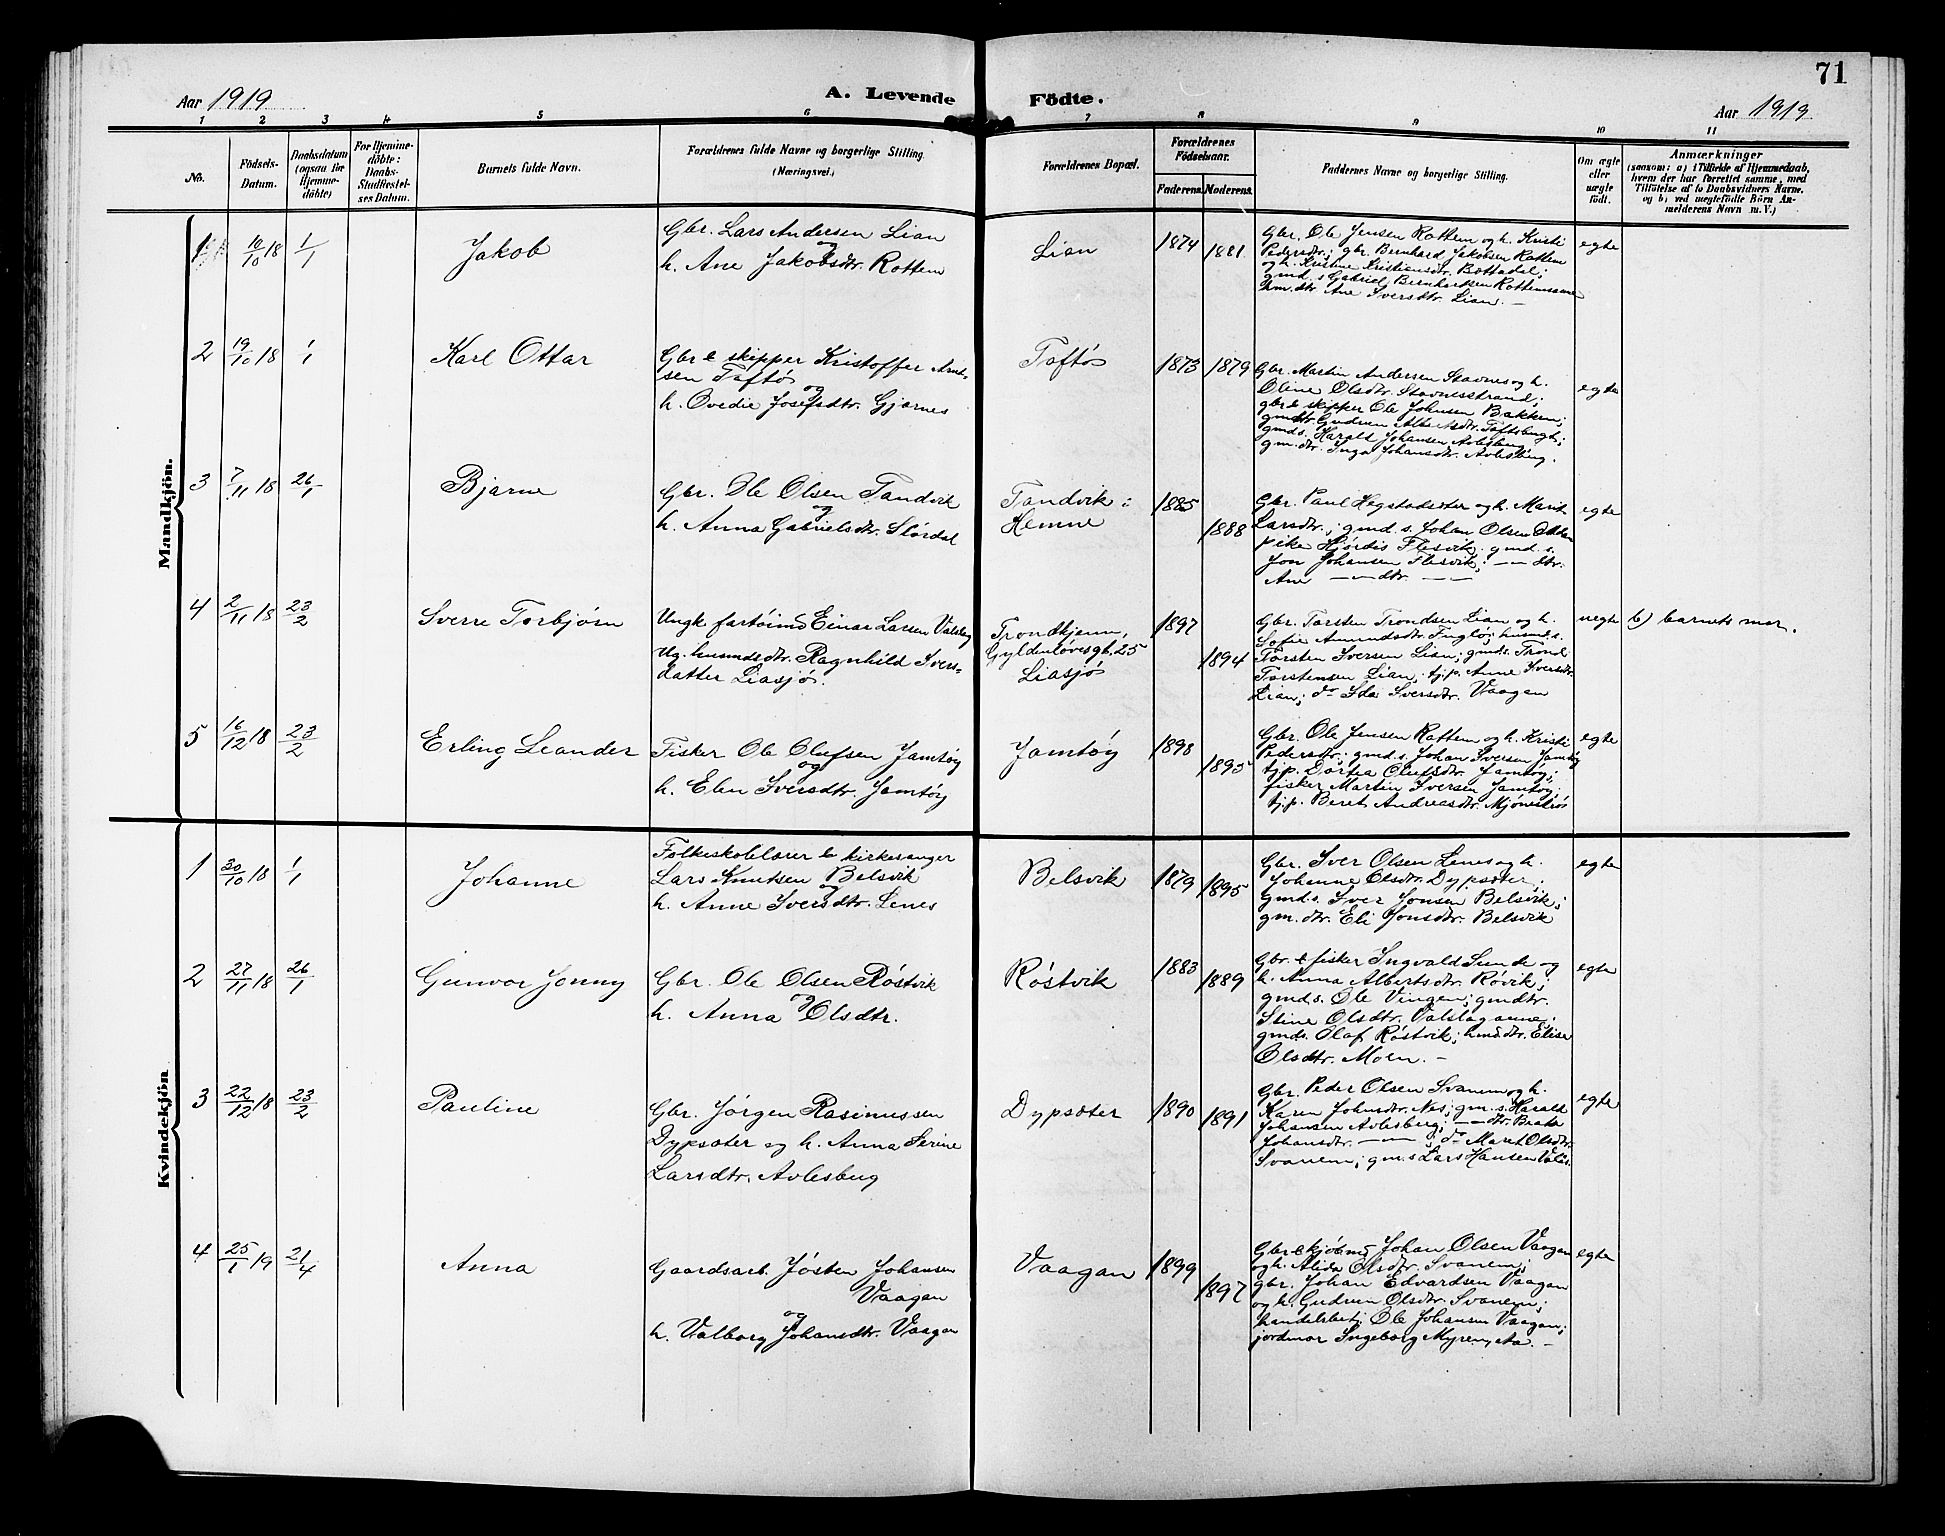 71
Aar 1919
A. Levende Födte.
Aar 1919
1 2 3 4 5 6 7 8 9 10 11
No.
Födsels-Datum.
Daabsdatum (ogsaa for Hjemme-döbte)
For Hjemme-döbte: Daabs-Stadfæstel-ses Datum.
Barnets fulde Navn.
Forældrenes fulde Navne og borgerlige Stilling
(Næringsvei.)
Forældrenes Bopæl.
Forældrenes Födselsaar.
Faderens. Moderens.
Faddernes Navne og borgerlige Stilling.
Om ægte eller uægte födt.
Anmærkninger
(saasom: a) i Tilfælde af Hjemmedaab,
hvem der har forrettet samme, med
Tilföielse af to Daabsvidners Navne,
og b) ved uægtefödte Börn An-
melderens Navn m. V.)
Mandkjön.
1 10/10 18 1/1 Jakob
Gbr. Lars Andersen Lian
og
h. Ane Jakobsdtr. Rottem
Lian 1874 1881
Gbr. Ole Jensen Rottem og h. Kristi
Pedersdtr; gbr. Bernhard Jakobsen Rottem
og h. Kristine Kristiansdtr. Bottadal;
gmd. s Gabriel Berntsen
hm. dtr. Ane Iversdtr. Lian. —
egte
2 19/10 18 1/1 Karl Ottar
Gbr & skipper Kristoffer Arnt-
sen Toftø
og
h. Ovedie Josefsdtr. Gjernes
Toftø 1873 1879
Gbr. Martin Andersen Stavnes og h.
Oline Olsdtr. Stavnesstrand;
gbr & skipper Ole Johnsen Bakken;
gmdtr. Gudrun Albertsdtr.
gmds. Harald Johansen Avlesbug;
gm. dtr. Inga Johansdtr. Avlesbug.
egte
3 7/11 18 26/1 Bjarne
Gbr. Ole Olsen Tandvik
og
h. Anna Gabrielsdtr. Stordal
Tandvik i
Hemne
1885 1888
Gbr. Paul Hegstadseter og h. Marit
Larsdtr.; gmd. s. Johan Olsen
pike Hjørdis Flesvik; gmd. s.
Jon Johansen Flesvik; — — dtr.
Ane — — dtr. — —
egte
4 2/11 18 23/2 Sverre Torbjørn
Ungk. fartøimd Einar Larsen Valsbug
Ug. husmdsdtr. Ragnhild Ivers-
datter Liasjø.
Trondhjem,
Gyldenløvesgt. 25
Liasjø
1897 1894
Gbr. Torsten Trondsen Lian og h.
Sofie Amundsdtr. Fuglø; husmd. s.
Torsten Iversen Lian; gmds. Trond
Torstensen Lian; tj.p. Anne Iversdtr.
Lian; do Ida Iversdtr. Vaagan
uegte b) barnets mor.
5 16/12 18 23/2 Erling Leander
Fisker Ole Olufsen Jamtøy
og
h. Elen Iversdtr. Jamtøy
Jamtøy 1898 1895
Gbr. Ole Jensen Rottem og h. Kristi
Pedersdtr; gmd. s. Johan Iversen Jamtøy
tj.p. Dortea Olufsdtr. Jamtøy;
fisker Martin Iversen Jamtøy;
tj.p. Beret Andreasdtr.
egte
Kvindekjön
1 30/10 18 1/1 Johanne
Folkeskolelærer & kirkesanger
Lars Knutsen Belsvik
og
h. Anne Iversdtr. Lenes
Belsvik 1879 1895
Gbr. Iver Olsen Lenes og h.
Johanne Olsdtr. Dypsæter;
Gmds. Iver Jonsen Belsvik;
gm. dtr. Eli Jonsdtr. Belsvik
egte
2 27/11 18 26/1 Gunvor Jenny
Gbr. Ole Olsen Røstvik
og
h. Anna Olsdtr.
Røstvik 1883 1889
Gbr. & fisker Ingvald Sunde og
h. Anna Albertsdtr. Røvik;
gmds. Ole Vingen; gmdtr.
Stine Olsdtr. Valslaganne;
gmds. Olaf Røstvik; hmd.dtr. Elise
Olsdtr. Moen. —
egte
3 22/12 18 23/2 Pauline
Gbr. Jørgen Rasmussen
Dypsæter og h. Anna Serine
Larsdtr. Avlesbug
Dypsæter 1890 1891
Gbr. Peder Olsen Svanem og h.
Karen Johnsdtr. Nes; gm. s. Harald
Johansen Avlesbug; — dtr. Beate
Johansdtr. — — ; do Maret Olsdtr.
Svanem; gm. s Lars Hansen
egte
4 25/1 19 21/4 Anna
Gaardsarb. Jøsten Johansen
Vaagan
og
h. Valborg Johansdtr. Vaagan
Vaagan 1899 1897
Gbr & kjøbmd Johan Olsen Vaagan
og h. Alida Olsdtr. Svanem;
gbr. Johan Edvardsen Vaagan
og h. Gudrun Olsdtr. Svanem;
handelsbetj. Ole Johansen Vaagan;
jordmor Ingeborg Myren, Aa. —
egte